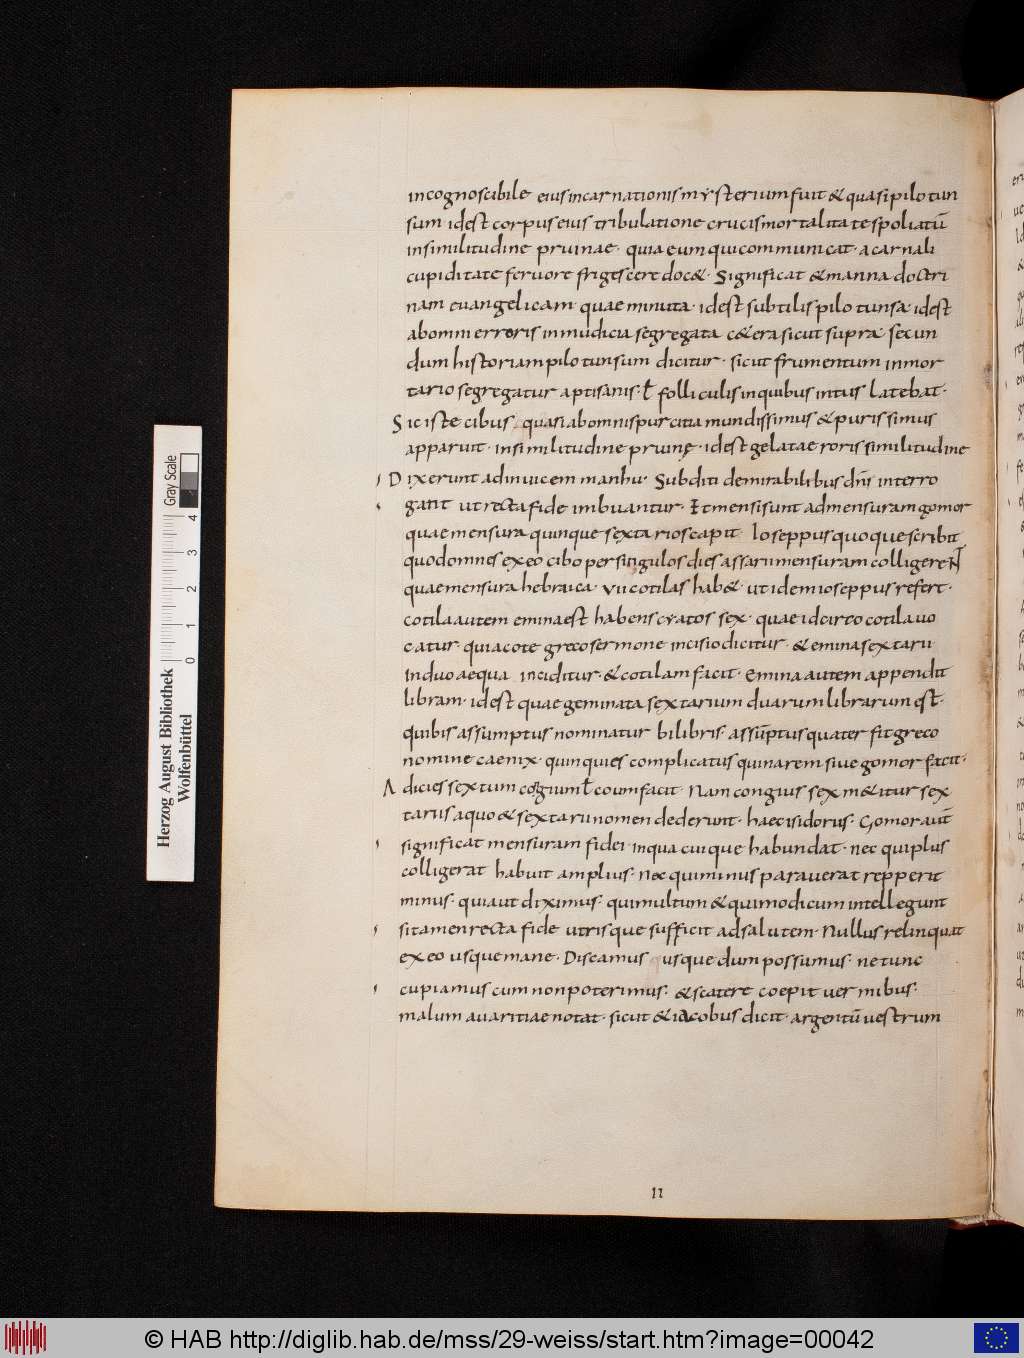 incognoscibile eius incarnationis mysterium fuit & quasi pilo tun
sum· idest corpus eius tribulatione crucis mortalitate spoliatū
in similitudine pruinae· quia eum qui communicat· a carnali
cupiditate fervore frigescere doc&· Significat & manna doctri
nam euangelicam· quae minuta· idest subtilis pilo tunsa· idest
ab omni erroris inmudicia segregata c&era sicut supra· secun
dum historiam pilo tunsum dicitur· sicut frumentum in mor
tario segregatur a ptisanis· ł folliculis in quibus intus latebat·
Sic iste cibus quasi ab omni spurcitia mundissimus & purissimus
apparuit· in similitudine pruinę· idest gelatae roris similitudine
Dixerunt ad inuicem manhu· Subditi de mirabilibus dñi interro
gant ut recta fide imbuantur· Et mensi sunt ad mensuram gomor
quae mensura quinque sextarios capit· Ioseppus quoque scribit
quod omnes ex eo cibo per singulos dies assari mensuram colligereNT
quae mensura hebraica· vii cotilas hab&· ut idem ioseppus refert·
cotila autem emina est habens cyatos sex· quae idcirco cotila uo
catur· quia cote greco sermone incisio dicitur· & emina sextarii
in duo aequa inciditur· & cotilam facit· Emina autem appendit
libram· idest quae geminata sextarium duarum librarum est·
quibis assumptus nominatur bilibris· assūptus quater fit greco
nomine caenix· quinquies complicatus quinarem siue gomor facit·
Adicies sextum congium ł coum facit Nam congius sex m&itur sex
tariis a quo & sextarii nomen dederunt· haec isidorus· Gomor aūt
significat mensuram fidei in qua cuique habundat· nec qui plus
colligerat habuit amplius· Nec qui minus parauerat repperit
minus· quia ut diximus· qui multum & qui modicum intellegunt
sit amen recta fide utrisque sufficit ad salutem· Nullus relinquat
ex eo usque mane· Discamus usque dum possumus· ne tunc
cupiamus cum non poterimus· & scatere coepit uermibus·
malum auaritiae notat· sicut & iacobus dicit· argentū uestrum
11
Herzog August Bibliothek
Wolfenbüttel
Gray Scale
0 1 2 3 4
© HAB http://diglib.hab.de/mss/29-weiss/start.htm?image=00042